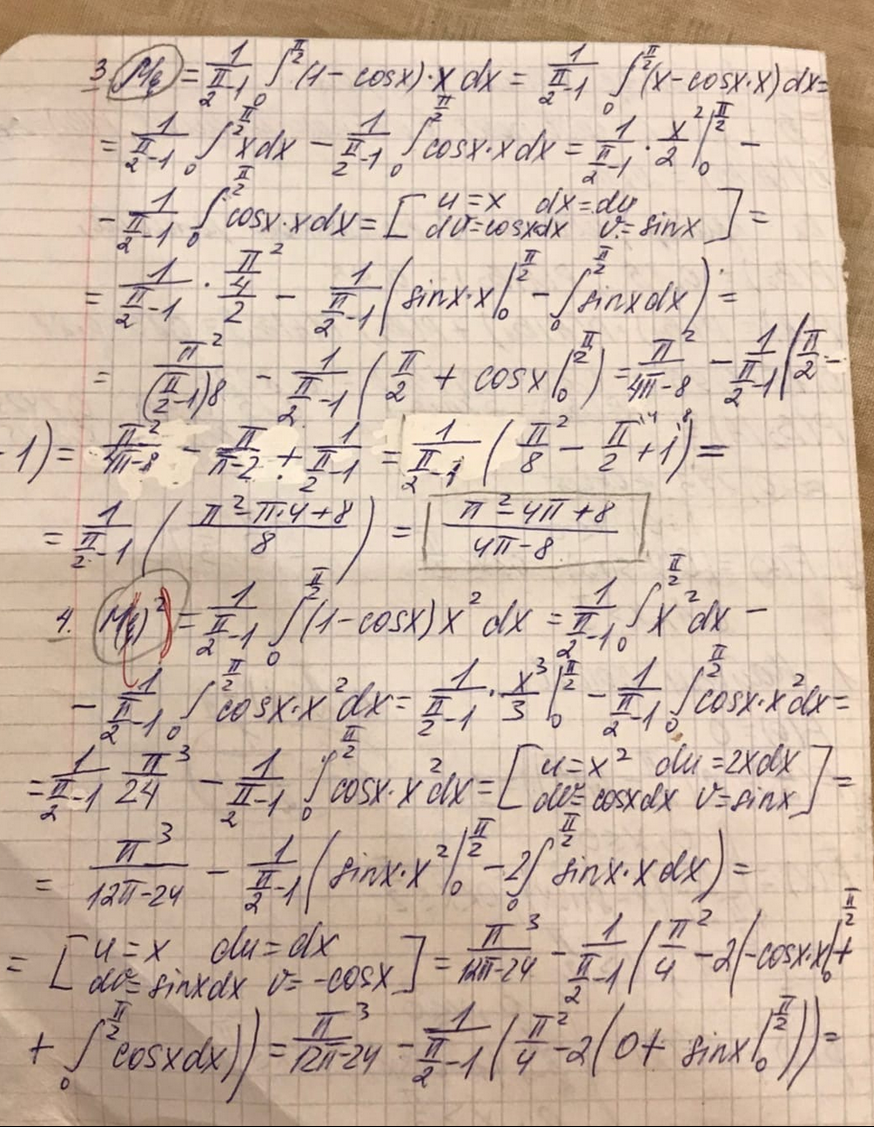 3. Mξ = \frac{1}{\frac{π}{2}-1} \int_0^{\frac{π}{2}} (1-cosx)·x dx = \frac{1}{\frac{π}{2}-1} \int_0^{\frac{π}{2}} (x-cosx·x)dx=
= \frac{1}{\frac{π}{2}-1} \int_0^{\frac{π}{2}} xdx - \frac{1}{\frac{π}{2}-1} \int_0^{\frac{π}{2}} cosx·x dx = \frac{1}{\frac{π}{2}-1} · \frac{x^2}{2} |_0^{\frac{π}{2}} -
- \frac{1}{\frac{π}{2}-1} \int_0^{\frac{π}{2}} cosx·xdx = [ u=x dx=du dv=cosxdx v=sinx ] =
= \frac{1}{\frac{π}{2}-1} · \frac{\frac{π^2}{4}}{2} - \frac{1}{\frac{π}{2}-1} ( sinx·x |_0^{\frac{π}{2}} - \int_0^{\frac{π}{2}} sinxdx ) =
= \frac{π^2}{(\frac{π}{2}-1)8} - \frac{1}{\frac{π}{2}-1} ( \frac{π}{2} + cosx |_0^{\frac{π}{2}} ) = \frac{π^2}{4π-8} - \frac{1}{\frac{π}{2}-1} ( \frac{π}{2} -
-1) = \frac{π^2}{4π-8} - \frac{π}{π-2} + \frac{1}{\frac{π}{2}-1} = \frac{1}{\frac{π}{2}-1} ( \frac{π^2}{8} - \frac{π}{2}^{\4} + 1^{\8} ) =
= \frac{1}{\frac{π}{2}-1} ( \frac{π^2-π·4+8}{8} ) = \frac{π^2-4π+8}{4π-8}
4. M(ξ)^2 = \frac{1}{\frac{π}{2}-1} \int_0^{\frac{π}{2}} (1-cosx) x^2 dx = \frac{1}{\frac{π}{2}-1} \int_0^{\frac{π}{2}} x^2 dx -
- \frac{1}{\frac{π}{2}-1} \int_0^{\frac{π}{2}} cosx·x^2dx = \frac{1}{\frac{π}{2}-1} · \frac{x^3}{3} |_0^{\frac{π}{2}} - \frac{1}{\frac{π}{2}-1} \int_0^{\frac{π}{2}} cosx·x^2dx =
= \frac{1}{\frac{π}{2}-1} \frac{π^3}{24} - \frac{1}{\frac{π}{2}-1} \int_0^{\frac{π}{2}} cosx·x^2dx = [ u=x^2 du=2xdx dv=cosxdx v=sinx ] =
= \frac{π^3}{12π-24} - \frac{1}{\frac{π}{2}-1} ( sinx·x^2 |_0^{\frac{π}{2}} - 2\int_0^{\frac{π}{2}} sinx·x dx ) =
= [ u=x du=dx dv=sinxdx v=-cosx ] = \frac{π^3}{12π-24} - \frac{1}{\frac{π}{2}-1} ( \frac{π^2}{4} - 2(-cosx·x |_0^{\frac{π}{2}} +
+ \int_0^{\frac{π}{2}} cosxdx)) = \frac{π^3}{12π-24} - \frac{1}{\frac{π}{2}-1} ( \frac{π^2}{4} - 2(0+ sinx |_0^{\frac{π}{2}} )) =